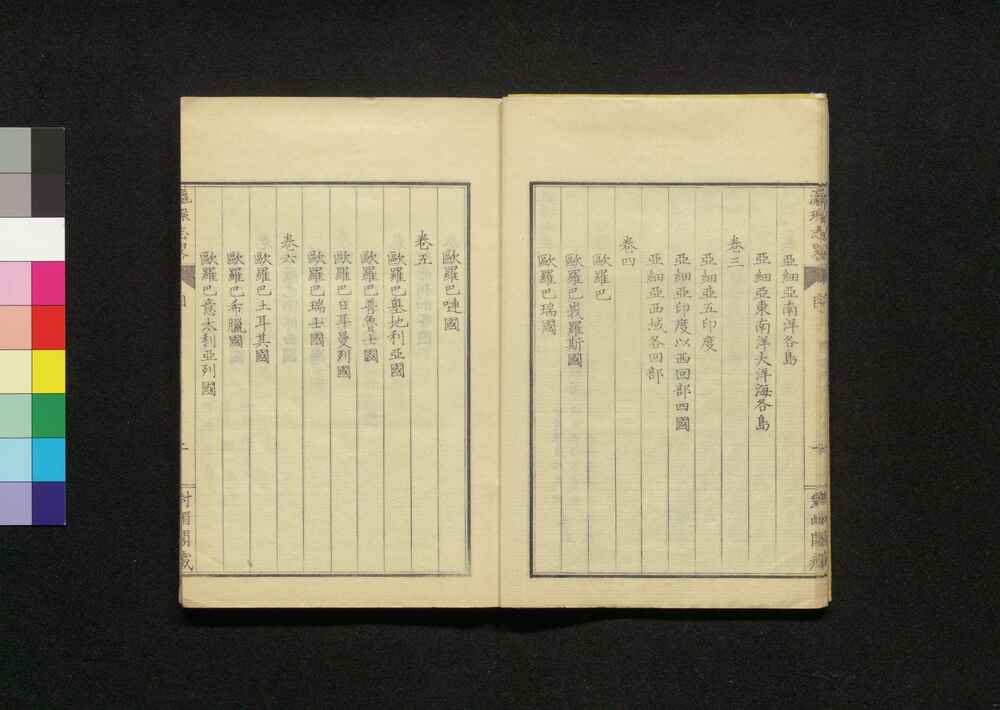 亞細亞南洋各島
亞細亞東南洋大洋海各島
卷三
亞細亞五印度
亞細亞印度以西回部四國
亞細亞西域各回部
卷四
歐羅巴
歐羅巴峩羅斯國
歐羅巴瑞國
歐羅巴嗹國
卷五
歐羅巴塾地利亞國
歐羅巴普魯士國
歐羅巴日耳曼列國
歐羅巴瑞士國
卷六
歐羅巴土耳其國
歐羅巴希臘國
歐羅巴意大利亞列國